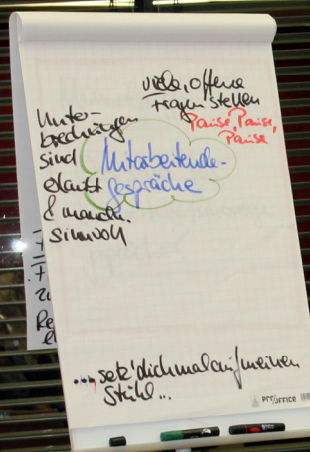 viele, offene
Fragen stellen
Pause, Pause,
Pause
Unter-
brechungen
sind
erlaubt
& manchm.
sinnvoll
Mitarbeitende-
gespräche
... setz' dich mal auf meinen
Stuhl...
OFFICE